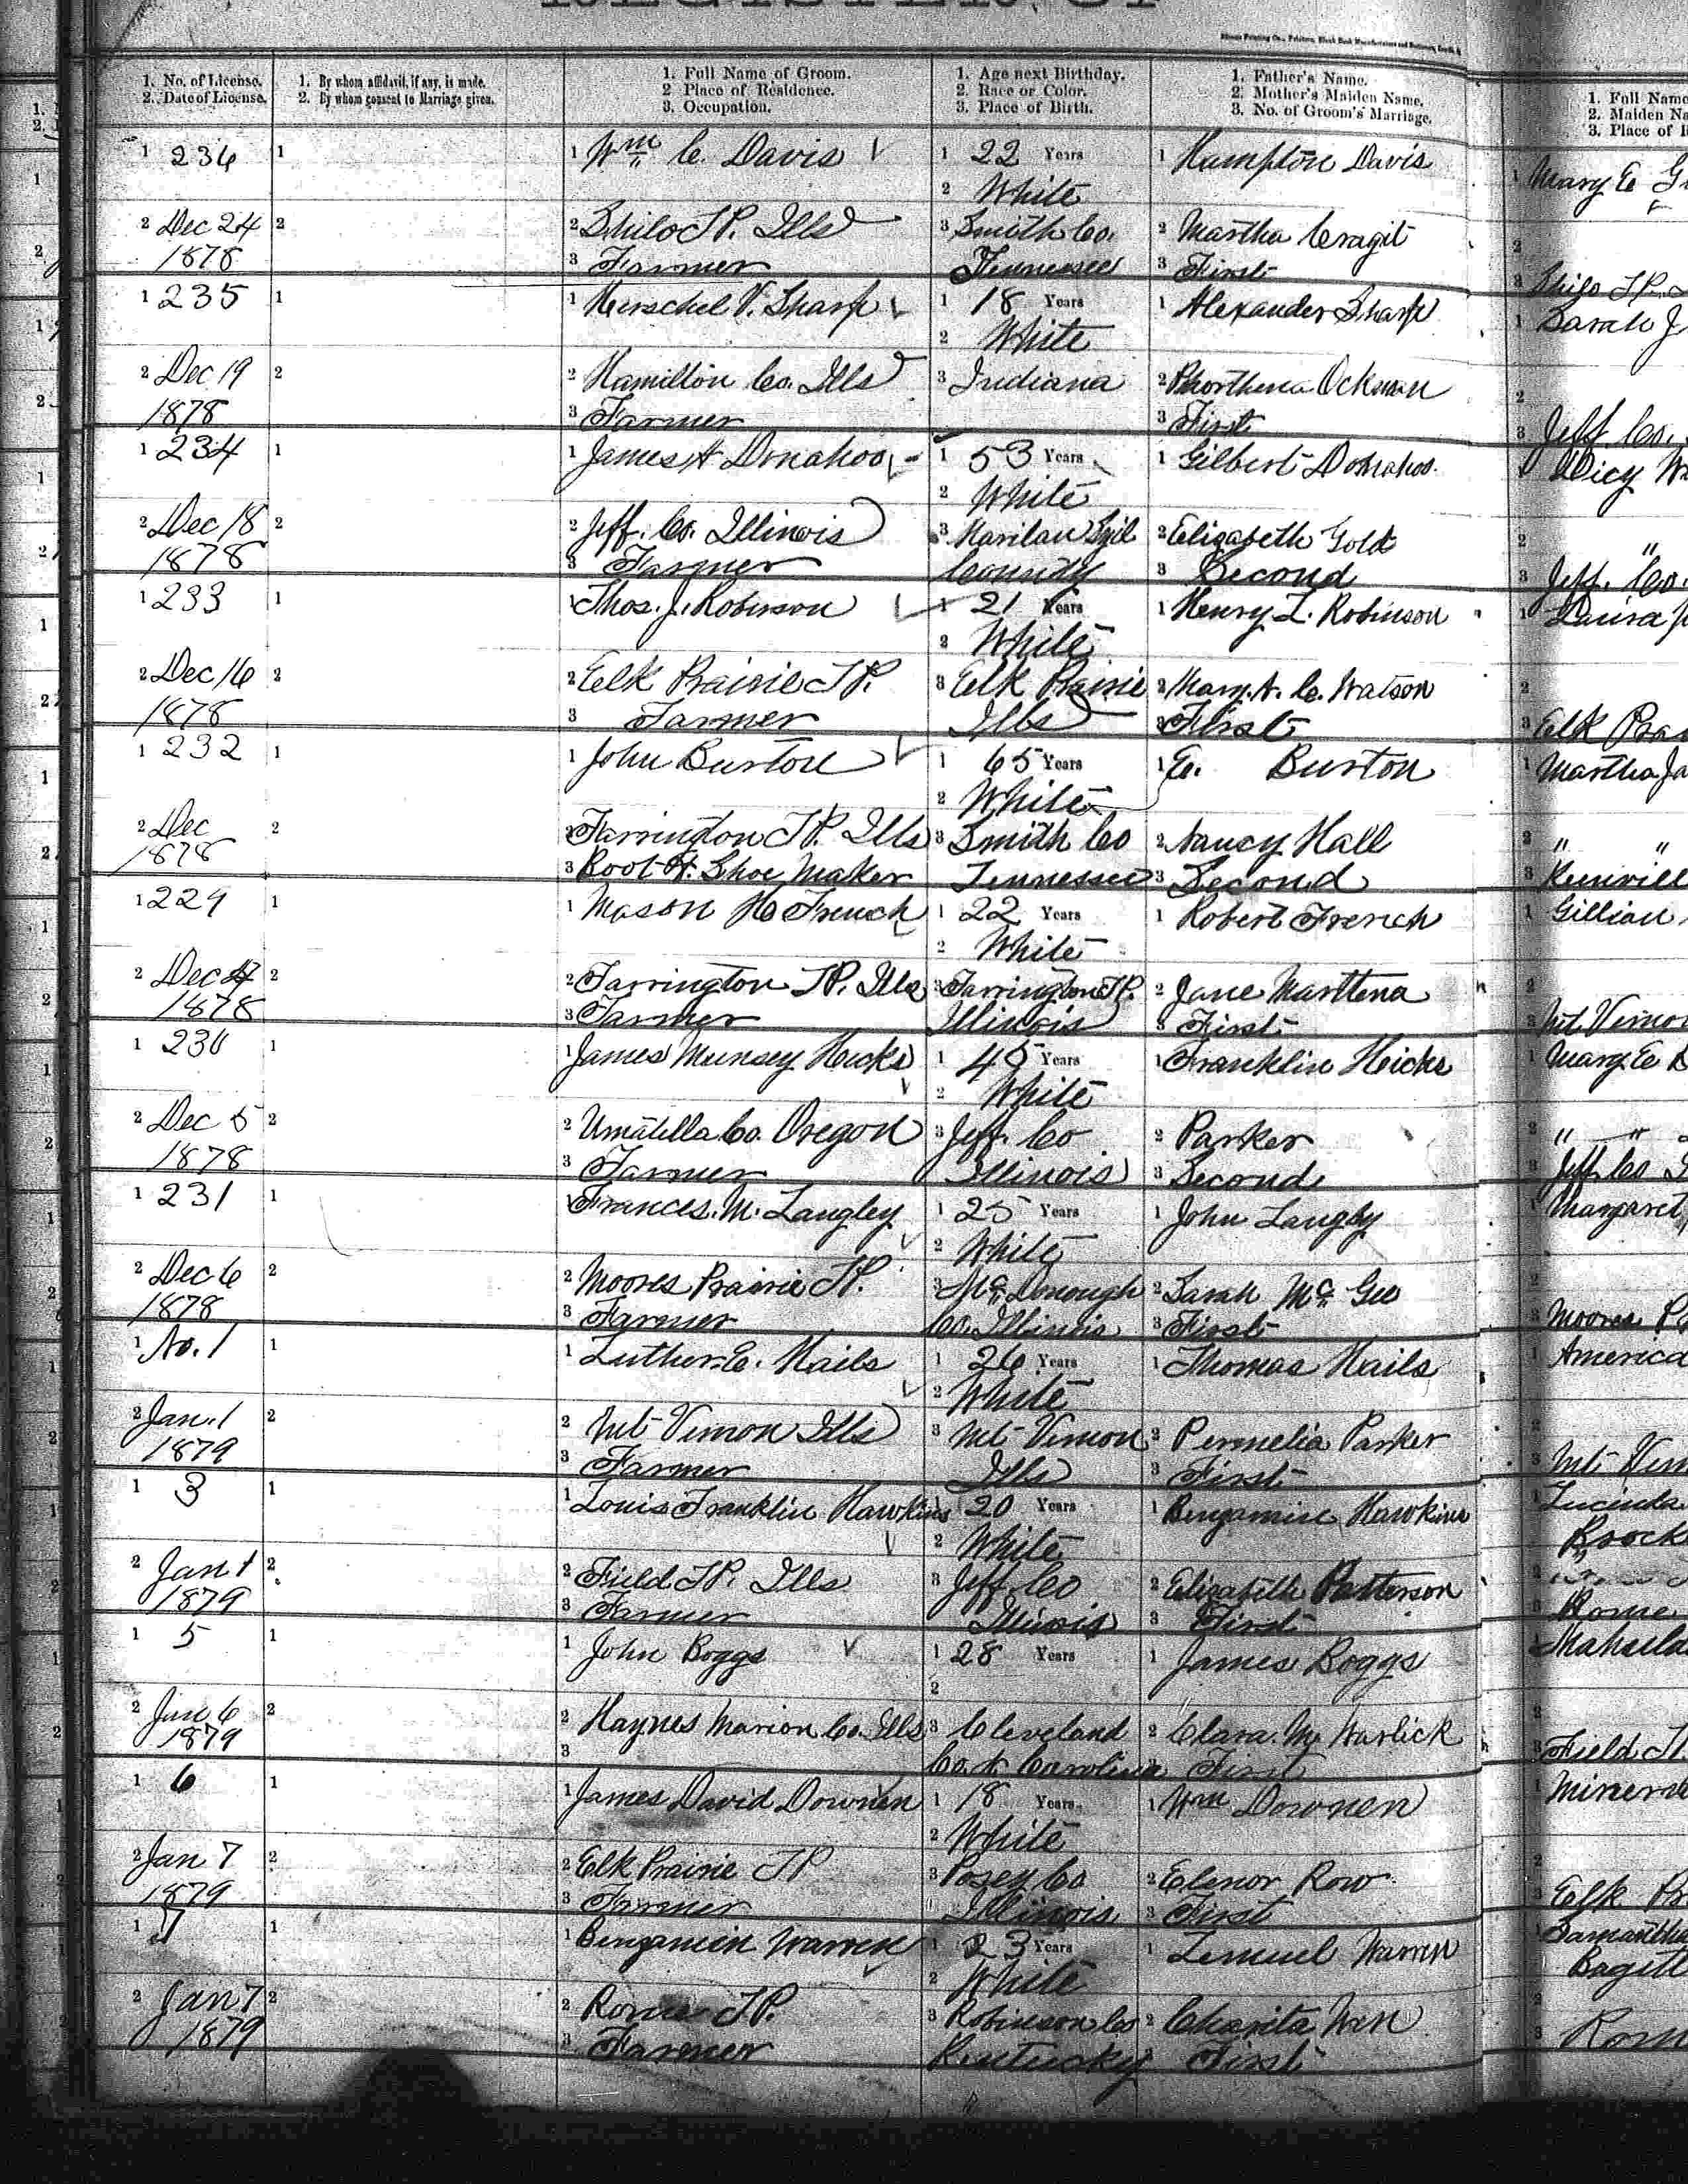 REGISTER OF
1. No. of License.
2. Date of License.
1. By whom affidavit, if any, is made.
2. By whom consent to Marriage given.
1. Full Name of Groom.
2 Place of Residence.
3. Occupation.
1. Age next Birthday.
2. Race or Color.
3. Place of Birth.
1. Father's Name.
2. Mother's Maiden Name.
3. No. of Groom's Marriage.
1. Full Name
2. Maiden Na
3. Place of
1 236 1 1 Wm C. Davis 1 22 Years 1 Hampton Davis 1 Mary E
2 White
2 Dec 24 2 2 Shilo TP. Ills 3 Smith Co. 2 Martha Cragit 2
1878 3 Farmer Tennessee 3 First 3 Shilo TP.
1 235 1 1 Herschel V. Sharp 1 18 Years 1 Alexander Sharp 1 Sarah J
2 White
2 Dec 19 2 2 Hamilton Co. Ills 3 Indiana 2 Ockman 2
1878 3 Farmer 3 First 3 Jeff Co.
1 234 1 1 James A Donahoo 1 53 Years 1 Gilbert Donahoo. 1 Dicy
2 White
2 Dec 18 2 2 Jeff. Co. Illinois 3 2 Elizabeth Gold 2 "
1878 3 Farmer 3 Second 3 Jeff. Co.
1 233 1 1 Thos. J. Robinson 1 21 Years 1 Henry L. Robinson 1 Laura
2 White
2 Dec 16 2 2 Elk Prairie TP. 3 Elk Prairie 2 Mary. A. C. Watson 2
1878 3 Farmer Ills 3 First 3 Elk Prai
1 232 1 1 John Burton 1 65 Years 1 E. Burton 1 Martha Ja
2 White
2 Dec 2 2 Farrington TP. Ills 3 Smith Co 2 Nancy Hall 2 " "
1878 3 Boot & Shoe Maker Tennessee 3 Second 3
1 229 1 1 Mason H French 1 22 Years 1 Robert French 1 Gillian
2 White
2 Dec 4 2 2 Farrington TP. Ills 3 Farrington TP. 2 Jane Marttena 2
1878 3 Farmer Illinois 3 First 3 Mt Vernon
1 230 1 1 James Munsey Hicks 1 45 Years 1 Franklin Hicks 1 Mary E
2 White
2 Dec 5 2 2 Umatilla Co. Oregon 3 Jeff. Co 2 Parker 2 " "
1878 3 Farmer Illinois 3 Second 3 Jeff Co
1 231 1 1 Frances. M. Langley 1 25 Years 1 John Langly 1 Margaret
2 White
2 Dec 6 2 2 Moores Prairie TP. 3 Mc Donough 2 Sarah Mc Gee 2
1878 3 Farmer Co. Illinois 3 First 3 Moores
1 No. 1 1 1 Luther E. Hails 1 26 Years 1 Thomas Hails 1 America
2 White
2 Jan. 1 2 2 Mt Vernon Ills 3 Mt Vernon 2 Permelia Parker 2
1879 3 Farmer Ills 3 First 3 Mt Vern
1 3 1 1 Louis Franklin Hawkins 1 20 Years 1 Benjamin Hawkins 1 Lucinda
2 White Brock
2 Jan 1 2 2 Field TP. Ills 3 Jeff Co 2 Elizabeth Patterson 2
1879 3 Farmer Illinois 3 First 3 Rome
1 5 1 1 John Boggs 1 28 Years 1 James Boggs 1
2
2 Jan 6 2 2 Haynes Marion Co. Ills 3 Cleveland 2 Clara. M. Warlick 2
1879 3 Co. N Carolina 3 First 3 Field T
1 6 1 1 James David Downen 1 18 Years 1 Wm Downen 1 Minerva
2 White
2 Jan 7 2 2 Elk Prairie TP 3 Posey Co 2 Elenor Row 2
1879 3 Farmer Illinois 3 First 3 Elk Pr
1 7 1 1 Benjamin Warren 1 23 Years 1 Lemuel Warren 1 Samantha
2 White Bagett
2 Jan 7 2 2 Rome TP. 3 Robinson Co 2 2
1879 3 Farmer Kentucky 3 First 3 Rom